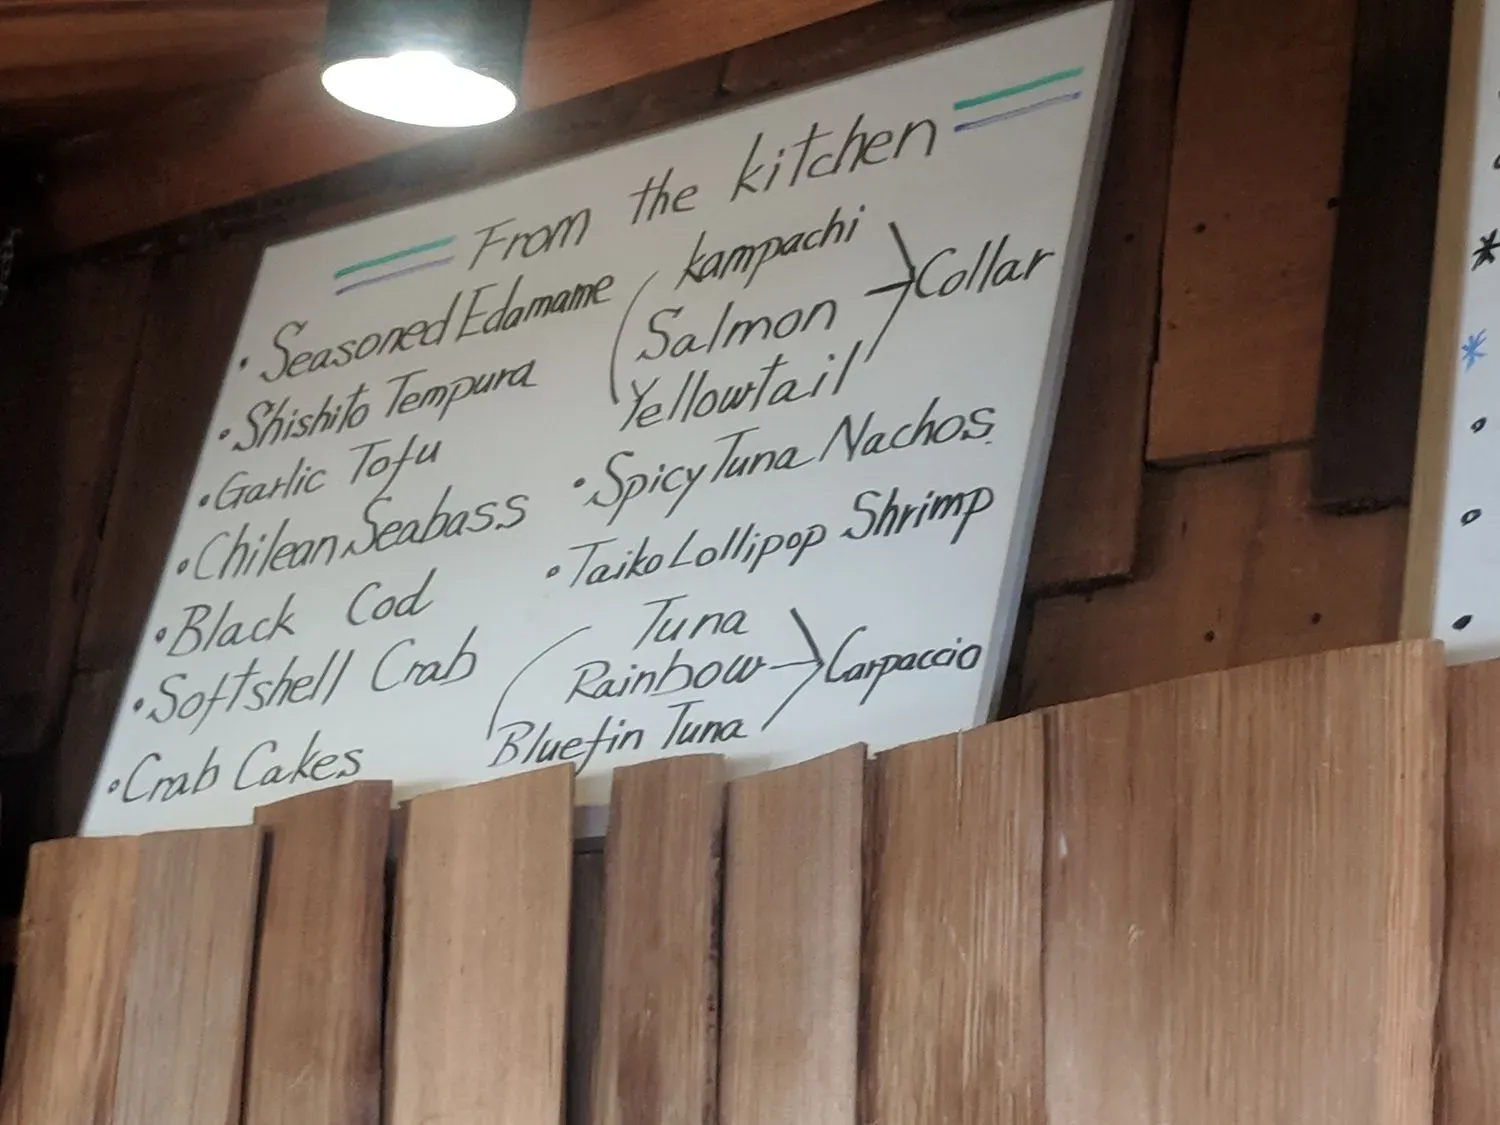 From the kitchen
• Seasoned Edamame
• Shishito Tempura
• Garlic Tofu
• Chilean Seabass
• Black Cod
• Softshell Crab
• Crab Cakes
kampachi
Salmon
Yellowtail
Collar
• Spicy Tuna Nachos
• Taiko Lollipop Shrimp
Tuna
Rainbow
Bluefin Tuna
Carpaccio